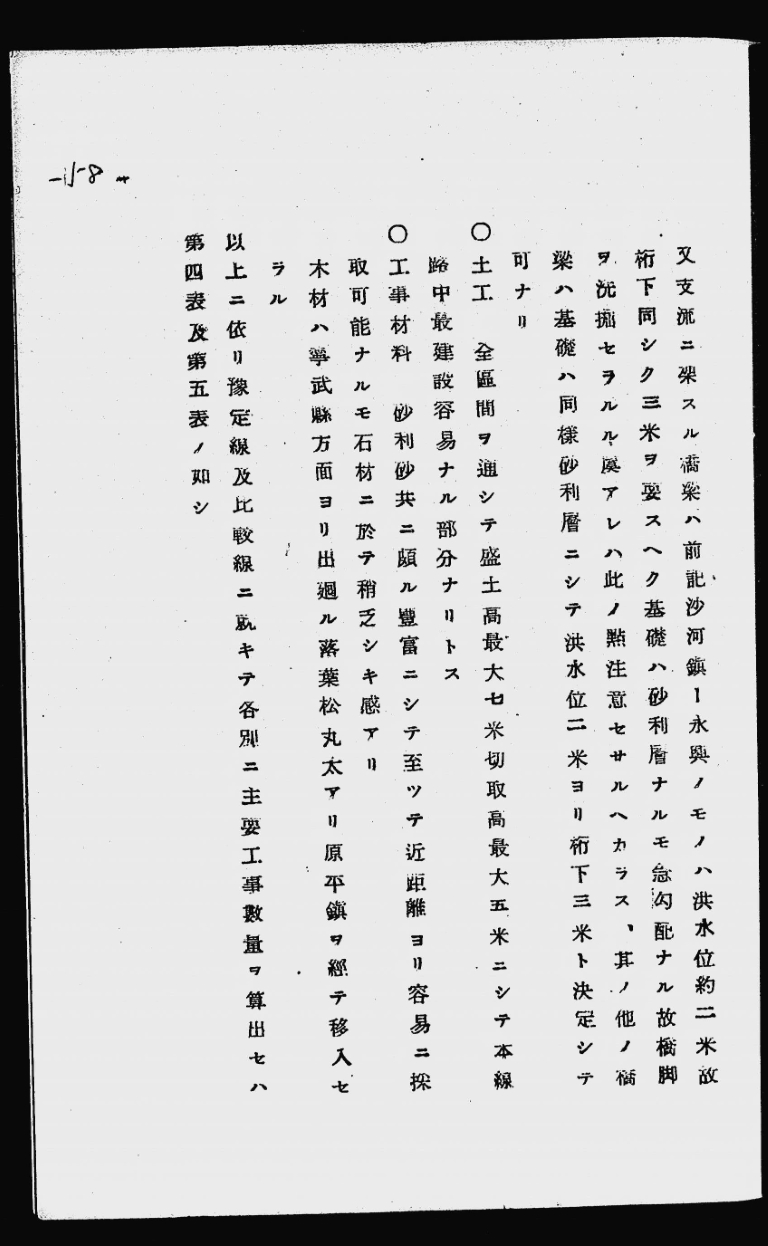 又支流ニ架スル橋梁ハ前記沙河鎭ー永興ノモノハ洪水位約二米故
桁下同シク三米ヲ要スヘク基礎ハ砂利層ナルモ急勾配ナル故橋脚
ヲ洗掘セラルル虞アレハ此ノ點注意セサルヘカラス、其ノ他ノ橋
梁ハ基礎ハ同樣砂利層ニシテ洪水位二米ヨリ桁下三米ト決定シテ
可ナリ
〇土工　全區間ヲ通シテ盛土高最大七米切取高最大五米ニシテ本線
路中最建設容易ナル部分ナリトス
〇工事材料　砂利砂共ニ頗ル豐富ニシテ至ツテ近距離ヨリ容易ニ採
取可能ナルモ石材ニ於テ稍乏シキ感アリ
木材ハ寧武縣方面ヨリ出廻ル落葉松丸太アリ原平鎭ヲ經テ移入セ
ラル
以上ニ依リ豫定線及比較線ニ就キテ各別ニ主要工事數量ヲ算出セハ
第四表及第五表ノ如シ